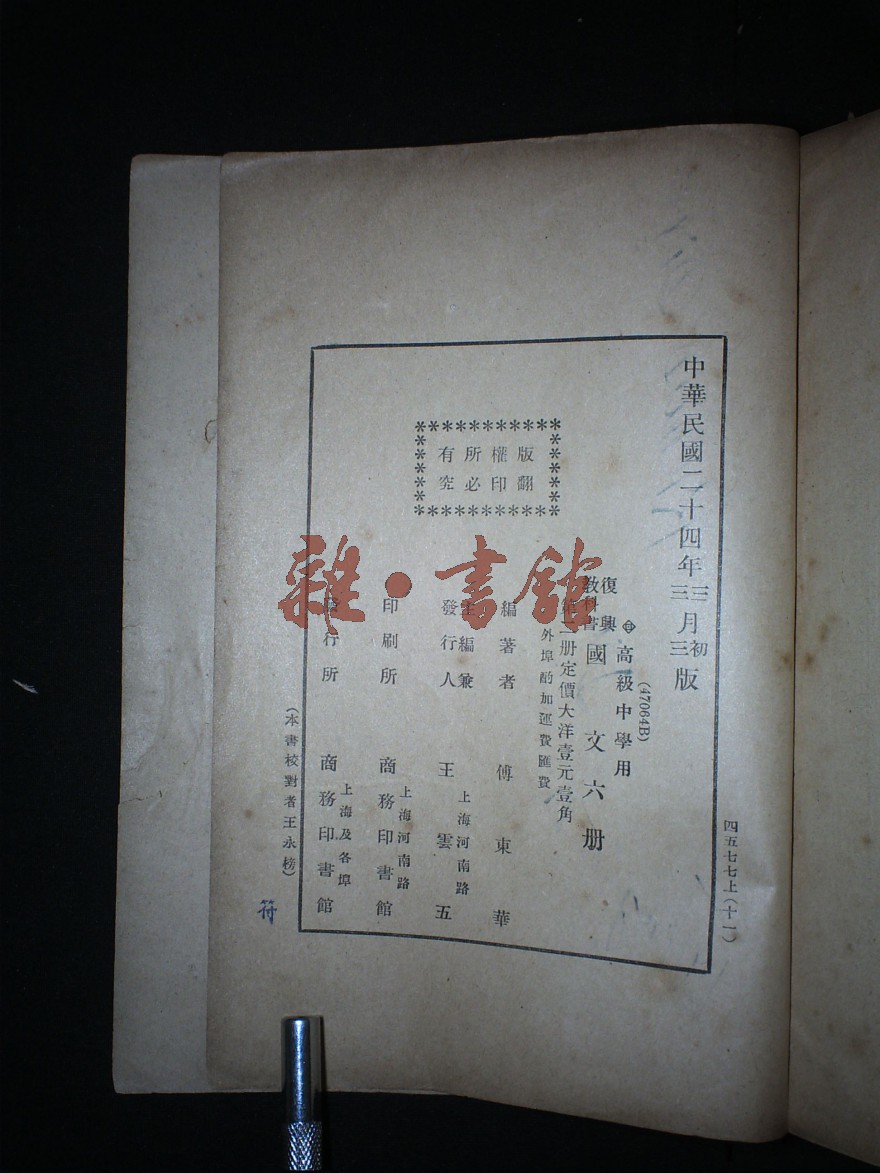 四五七七上(十一)
中華民國二十四年三三月初三版
(47064B)
高級中學用
復興教科書 國文六册
第二册定價大洋壹元壹角
外埠酌加運費匯費
版權所有
翻印必究
編著者 傅東華
主編兼發行人 王雲五
上海河南路
印刷所 商務印書館
上海河南路
發行所 商務印書館
上海及各埠
(本書校對者王永榜)
符
雜·書館